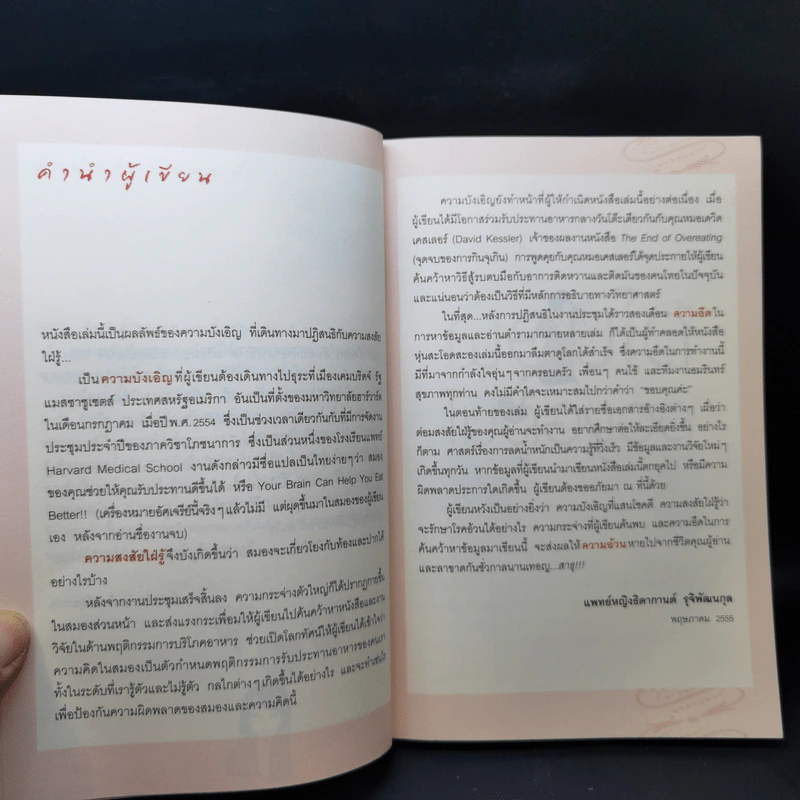 คำนำผู้เขียน
หนังสือเล่มนี้เป็นผลลัพธ์ของความบังเอิญ ที่เดินทางมาปฏิสนธิกับความสงสัย
ใฝ่รู้...
เป็น ความบังเอิญ ที่ผู้เขียนต้องเดินทางไปธุระที่เมืองเคมบริดจ์ รัฐ
แมสซาชูเซตส์ ประเทศสหรัฐอเมริกา อันเป็นที่ตั้งของมหาวิทยาลัยฮาร์วาร์ด
ในเดือนกรกฎาคม เมื่อปี พ.ศ. 2554 ซึ่งเป็นช่วงเวลาเดียวกันกับที่มีการจัดงาน
ประชุมประจำปีของภาควิชาโภชนาการ ซึ่งเป็นส่วนหนึ่งของโรงเรียนแพทย์
Harvard Medical School งานดังกล่าวมีชื่อแปลเป็นไทยง่ายๆ ว่า สมอง
ของคุณช่วยให้คุณรับประทานดีขึ้นได้ หรือ Your Brain Can Help You Eat
Better!! (เครื่องหมายอัศเจรีย์นี้จริงๆ แล้วไม่มี แต่ผุดขึ้นมาในสมองของผู้เขียน
เอง หลังจากอ่านชื่องานจบ)
ความสงสัยใฝ่รู้ จึงบังเกิดขึ้นว่า สมองจะเกี่ยวโยงกับท้องและปากได้
อย่างไรบ้าง
หลังจากงานประชุมเสร็จสิ้นลง ความกระจ่างตัวใหญ่ก็ได้ปรากฏกายขึ้น
ในสมองส่วนหน้า และส่งแรงกระเพื่อมให้ผู้เขียนไปค้นคว้าหาหนังสือและงาน
วิจัยในด้านพฤติกรรมการบริโภคอาหาร ช่วยเปิดโลกทัศน์ให้ผู้เขียนได้เข้าใจว่า
ความคิดในสมองเป็นตัวกำหนดพฤติกรรมการรับประทานอาหารของคนเรา
ทั้งในระดับที่เรารู้ตัวและไม่รู้ตัว กลไกต่างๆ เกิดขึ้นได้อย่างไร และจะทำเช่นไร
เพื่อป้องกันความผิดพลาดของสมองและความคิดนี้
ความบังเอิญยังทำหน้าที่ผู้ให้กำเนิดหนังสือเล่มนี้อย่างต่อเนื่อง เมื่อ
ผู้เขียนได้มีโอกาสร่วมรับประทานอาหารกลางวันโต๊ะเดียวกันกับคุณหมอเดวิด
เคสเลอร์ (David Kessler) เจ้าของผลงานหนังสือ The End of Overeating
(จุดจบของการกินจุเกิน) การพูดคุยกับคุณหมอเคสเลอร์ได้จุดประกายให้ผู้เขียน
ค้นคว้าหาวิธีสู้รบตบมือกับอาการติดหวานและติดมันของคนไทยในปัจจุบัน
และแน่นอนว่าต้องเป็นวิธีที่มีหลักการอธิบายทางวิทยาศาสตร์
ในที่สุด...หลังการปฏิสนธิในงานประชุมได้ราวสองเดือน ความอึด ใน
การหาข้อมูลและอ่านตำรามากมายหลายเล่ม ก็ได้เป็นผู้ทำคลอดให้หนังสือ
หุ่นสะโอดสะองเล่มนี้ออกมาลืมตาดูโลกได้สำเร็จ ซึ่งความอึดในการทำงานนี้
มีที่มาจากกำลังใจอุ่นๆ จากครอบครัว เพื่อนๆ คนไข้ และทีมงานอมรินทร์
สุขภาพทุกท่าน คงไม่มีคำใดจะเหมาะสมไปกว่าคำว่า "ขอบคุณค่ะ"
ในตอนท้ายของเล่ม ผู้เขียนได้ใส่รายชื่อเอกสารอ้างอิงต่างๆ เผื่อว่า
ต่อมสงสัยใฝ่รู้ของคุณผู้อ่านจะทำงาน อยากศึกษาต่อให้ละเอียดยิ่งขึ้น อย่างไร
ก็ตาม ศาสตร์เรื่องการลดน้ำหนักเป็นความรู้ที่วิ่งเร็ว มีข้อมูลและงานวิจัยใหม่ๆ
เกิดขึ้นทุกวัน หากข้อมูลที่ผู้เขียนนำมาเขียนหนังสือเล่มนี้ตกยุคไป หรือมีความ
ผิดพลาดประการใดเกิดขึ้น ผู้เขียนต้องขออภัยมา ณ ที่นี้ด้วย
ผู้เขียนหวังเป็นอย่างยิ่งว่า ความบังเอิญที่แสนโชคดี ความสงสัยใฝ่รู้ว่า
จะรักษาโรคอ้วนได้อย่างไร ความกระจ่างที่ผู้เขียนค้นพบ และความอึดในการ
ค้นคว้าหาข้อมูลมาเขียนนี้ จะส่งผลให้ ความอ้วน หายไปจากชีวิตคุณผู้อ่าน
และลาขาดกันชั่วกาลนานเทอญ...สาธุ!!!
แพทย์หญิงธิดากานต์ รุจิพัฒนกุล
พฤษภาคม 2555